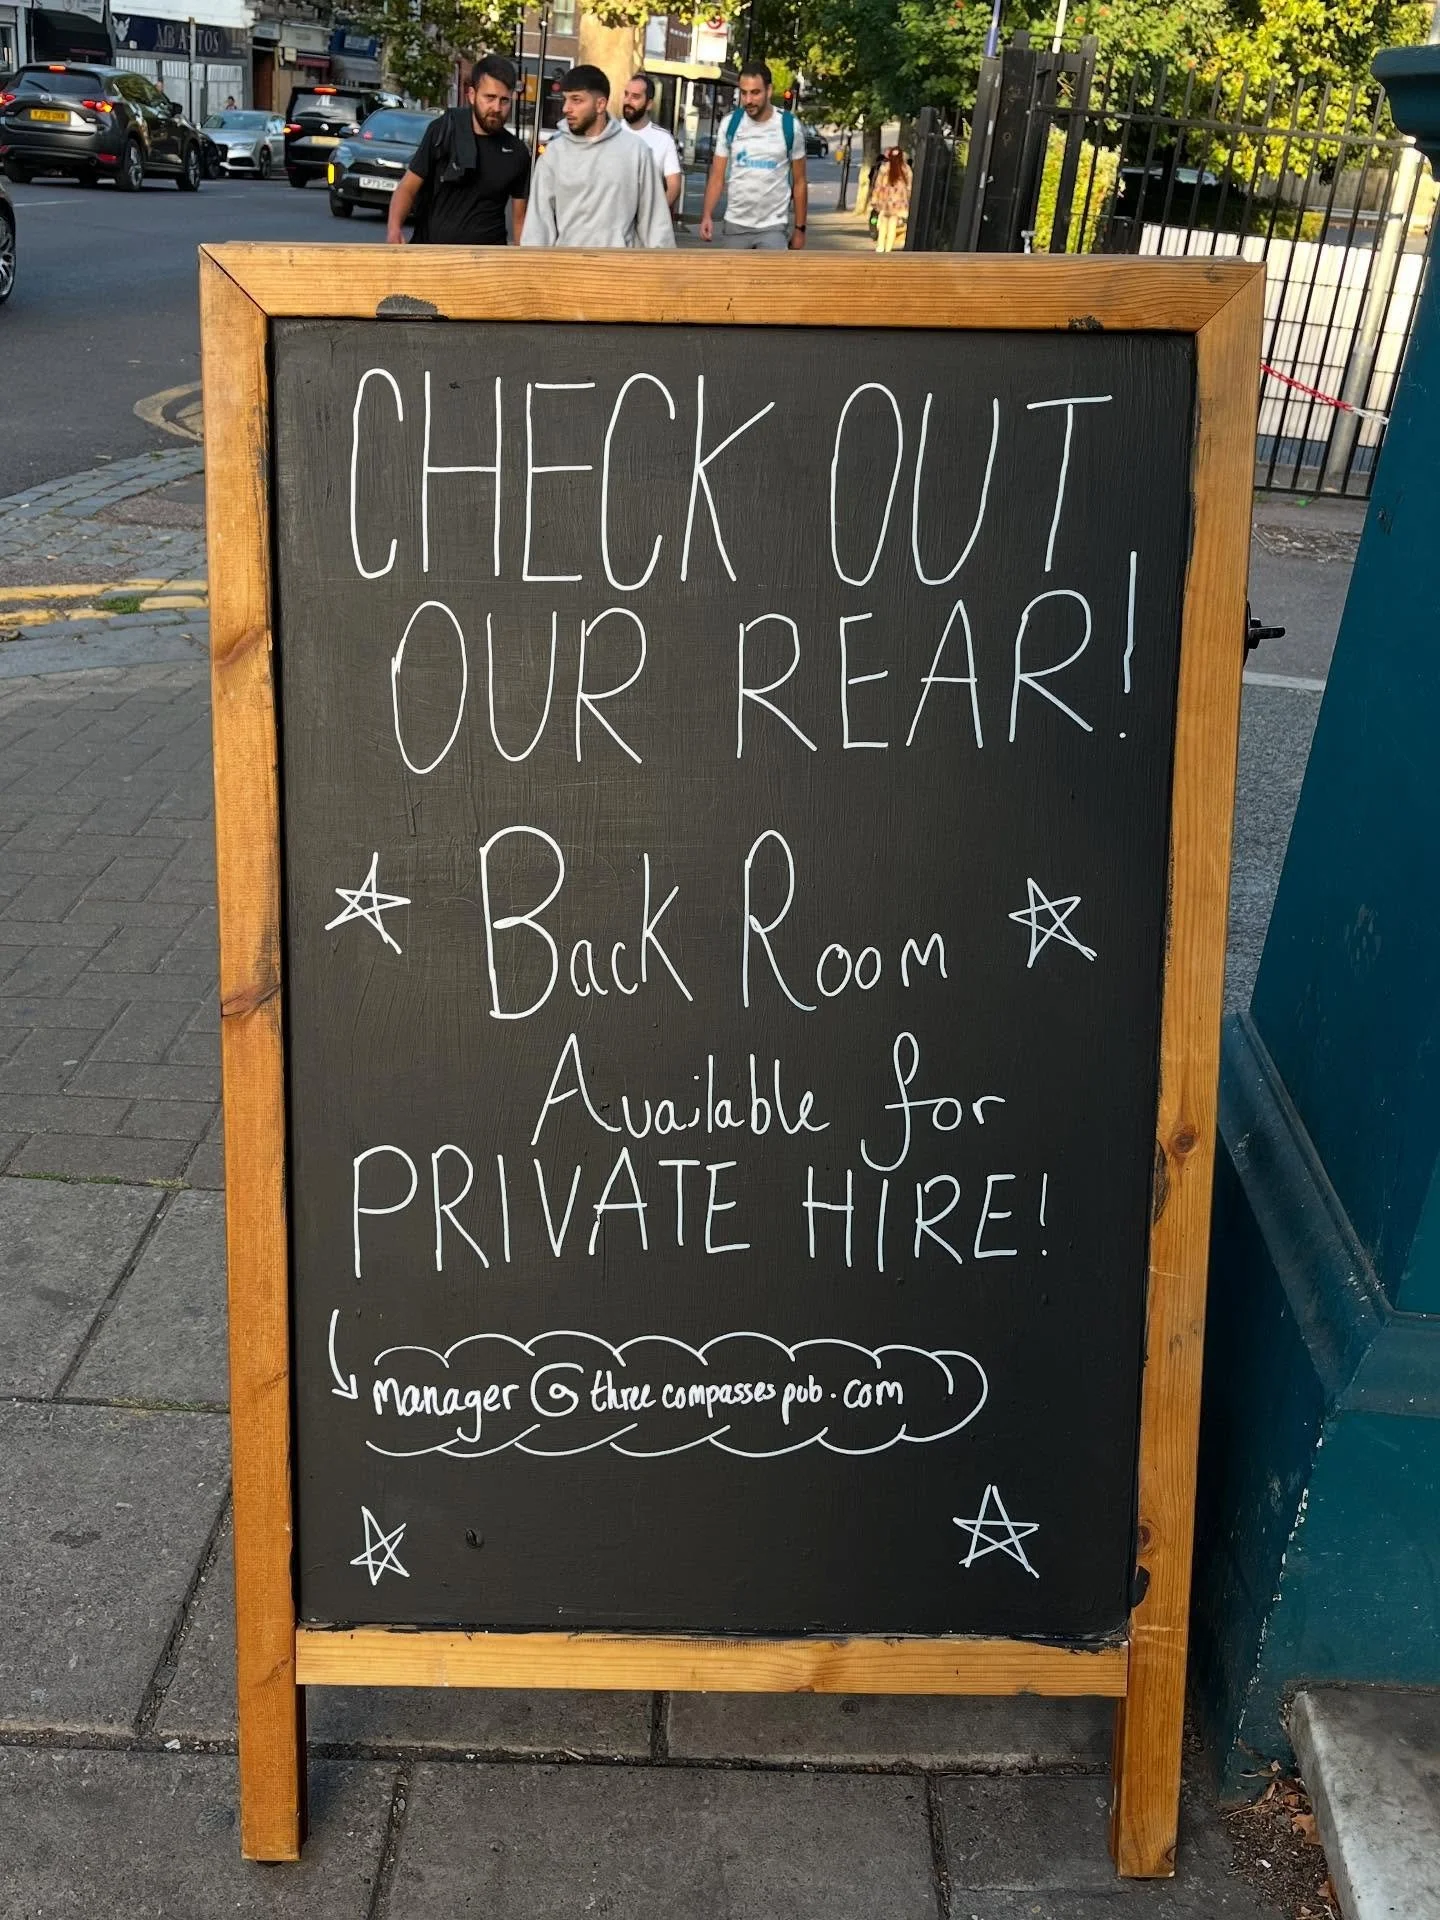 CHECK OUT
OUR REAR!
Back Room
Available for
PRIVATE HIRE!
manager@threecompassespub.com